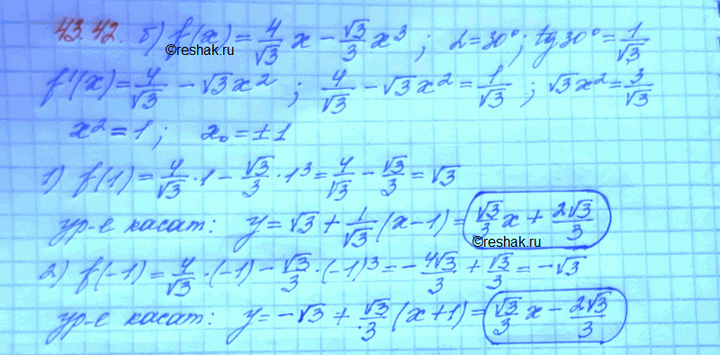 43.42. б) f(x) = 4/√3 x − √3/3 x³ ; α = 30° ; tg 30° = 1/√3
©reshak.ru
f'(x) = 4/√3 − √3x² ; 4/√3 − √3x² = 1/√3 ; √3x² = 3/√3
x² = 1 ; x₀ = ±1
1) f(1) = 4/√3 · 1 − √3/3 · 1³ = 4/√3 − √3/3 = √3
ур-е касат: y = √3 + 1/√3 (x − 1) = √3/3 x + 2√3/3
©reshak.ru
2) f(−1) = 4/√3 · (−1) − √3/3 · (−1)³ = − 4√3/3 + √3/3 = −√3
ур-е касат: y = −√3 + √3/3 (x + 1) = √3/3 x − 2√3/3